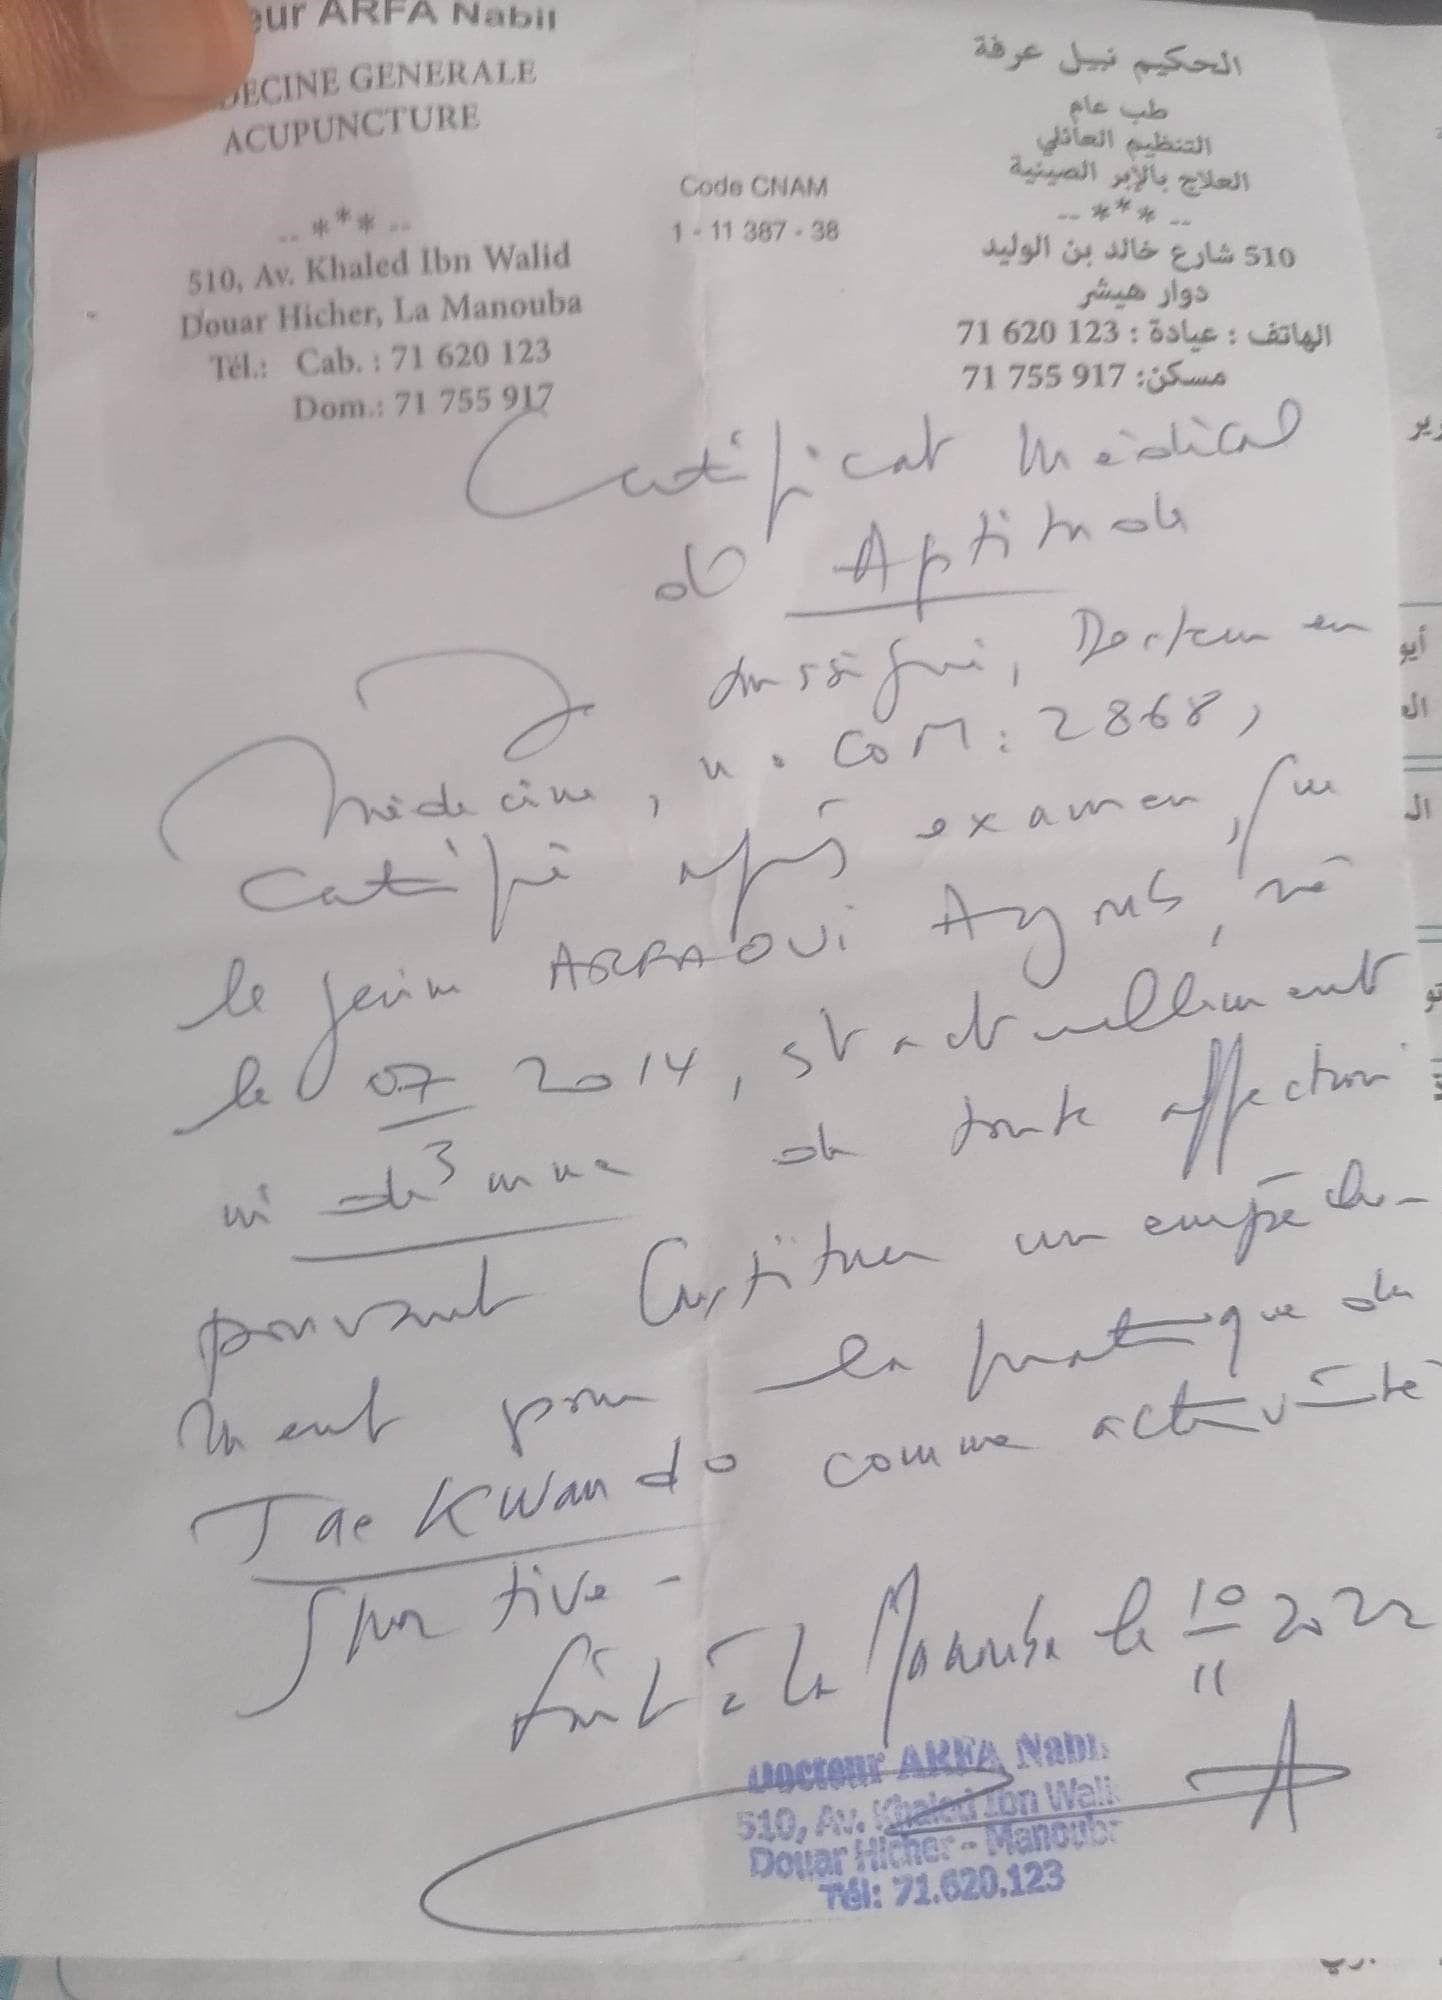 eur ARFA Nabil
DECINE GENERALE
ACUPUNCTURE
-- *** --
510, Av. Khaled Ibn Walid
Douar Hicher, La Manouba
Tél.: Cab. : 71 620 123
Dom.: 71 755 917
Code CNAM
1 - 11 387 - 38
الحكيم نبيل عرفة
طب عام
التنظيم العائلي
العلاج بالإبر الصينية
-- *** --
510 شارع خالد بن الوليد
دوار هيشر
الهاتف : عيادة : 71 620 123
مسكن: 71 755 917
Certificat Médical
d' Aptitude
Je soussigné, Docteur en
Médecine, n° COM: 2868,
certifie après examen, que
le jeune ARRAOUI Ayoub, né
le 07 2014, est actuellement
indemne de toute affection
3
pouvant constituer un empêche-
ment pour la pratique de
Tae Kwando comme activité
sportive -
fait à la Manouba le 10/11 2022
Docteur ARFA Nabi
510, Av. Khaled Ibn Wali
Douar Hicher - Manouba
Tél: 71.620.123